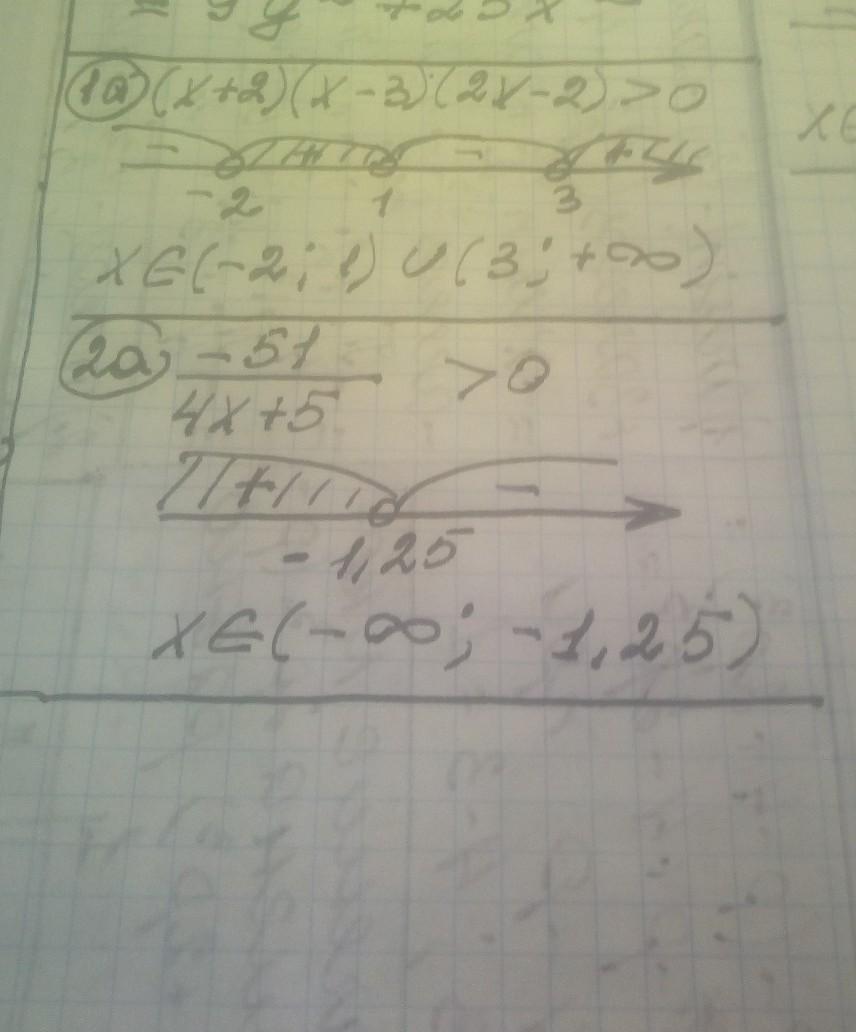 = 9y² + 25x
1a) (x+2)(x-3)(2x-2) > 0
- + - +
-2 1 3
x∈(-2; 1) ∪ (3; +∞)
2a) -51 / 4x+5 > 0
+ -
-1,25
x∈(-∞; -1,25)
x∈